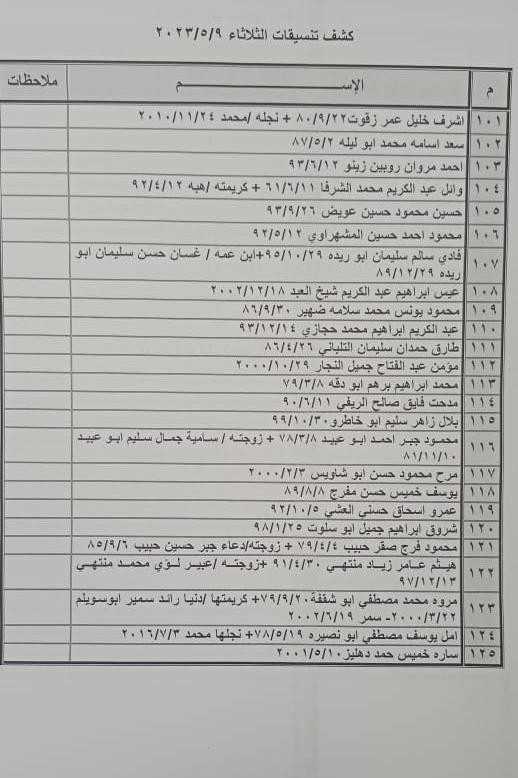 كشف تنسيقات الثلاثاء ٢٠٢٣/٥/٩
م الإســـــــــم ملاحظات
١٠١ اشرف خليل عمر زقوت٨٠/٩/٢٢ + نجله /محمد ٢٠١٠/١١/٢٤
١٠٢ سعد اسامه محمد ابو ليله ٨٧/٥/٢
١٠٣ احمد مروان روبين زينو ٩٣/٦/١٢
١٠٤ وائل عبد الكريم محمد الشرفا ٦١/٦/١١ + كريمته /هبه ٩٢/٤/١٢
١٠٥ حسين محمود حسين عويض ٩٣/٩/٢٦
١٠٦ محمود احمد حسين المشهراوي ٩٢/٥/١٢
١٠٧ فادي سالم سليمان ابو ريده ٩٥/١٠/٢٩+ابن عمه / غسان حسن سليمان ابو
ريده ٨٩/١٢/٢٩
١٠٨ عيس ابراهيم عبد الكريم شيخ العبد ٢٠٠٢/١٢/١٨
١٠٩ محمود يونس محمد سلامه ضهير ٨٦/٩/٣٠
١١٠ عبد الكريم ابراهيم محمد حجازي ٩٣/١٢/١٤
١١١ طارق حمدان سليمان التلباني ٨٦/٤/٢٦
١١٢ مؤمن عبد الفتاح جميل النجار ٢٠٠٠/١٠/٢٩
١١٣ محمد ابراهيم برهم ابو دقه ٧٩/٣/٨
١١٤ مدحت فايق صالح الريفي ٩٠/٦/١١
١١٥ بلال زاهر سليم ابو خاطرو٩٩/١٠/٣٠
١١٦ محمود جبر احمد ابو عبيد ٧٨/٣/٨ + زوجته / سامية جمال سليم ابو عبيد
٨١/١١/١٠
١١٧ مرح محمود حسن ابو شاويس ٢٠٠٠/٢/٣
١١٨ يوسف خميس حسن مفرج ٨٩/٨/٨
١١٩ عمرو اسحاق حسني العشي ٩٢/١٠/٥
١٢٠ شروق ابراهيم جميل ابو سلوت ٩٨/١/٢٥
١٢١ محمود فرج صقر حبيب ٧٩/٤/٤ + زوجته/دعاء جبر حسين حبيب ٨٥/٩/٦
١٢٢ هيثم عامر زياد منتهي ٩١/٤/٣٠ +زوجته /عبير لؤي محمد منتهي
٩٧/١٢/١٣
١٢٣ مروه محمد مصطفي ابو شقفة٧٩/٩/٢٠+ كريمتها /دنيا رائد سمير ابوسويلم
٢٠٠٠/٣/٢٢- سمر ٢٠٠٢/٦/١٩
١٢٤ امل يوسف مصطفي ابو نصيره ٧٨/٥/١٩+ نجلها محمد ٢٠١٦/٧/٣
١٢٥ ساره خميس حمد دهليز٢٠٠١/٥/١٠